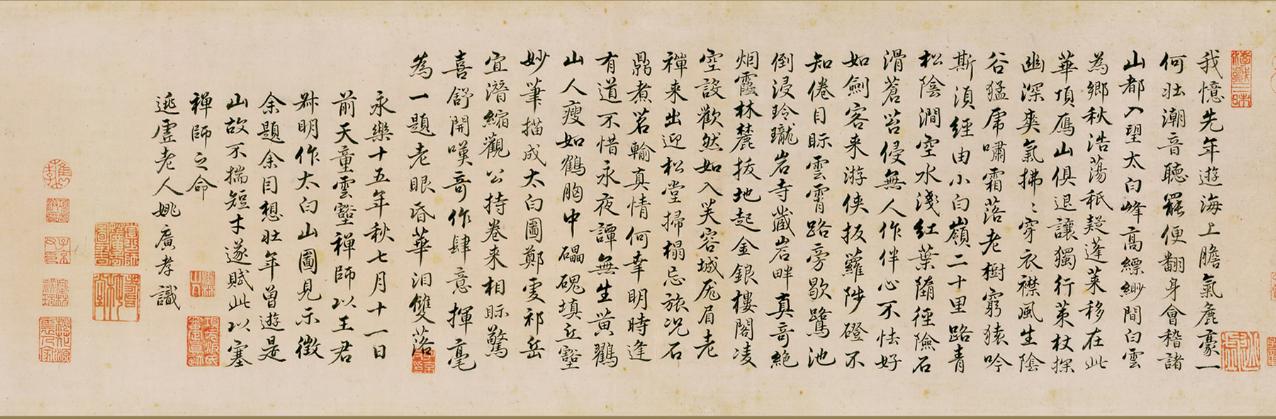 我憶先年遊海上膽氣麁豪一
何壯潮音聽罷便翻身會稽諸
山都入望太白峰高縹緲間白雲
為鄉秋浩蕩秖疑蓬萊移在此
華頂鴈山俱退讓獨行策杖探
幽深爽氣拂〻穿衣襟風生陰
谷猛虎嘯霜落老樹窮猿吟
斯湏經由小白嶺二十里路青
松陰澗空水淺紅葉墮徑險石
滑蒼苔侵無人作伴心不怯好
如劍客來游俠扳蘿陟磴不
知倦目眎雲霄路旁歇鷺池
倒浸玲瓏岩寺藏岩畔真奇絶
烟霞林麓拔地起金銀樓閣凌
空設歡然如入芙容城厖眉老
禪来出迎松堂掃榻忘旅況石
鼎煮茗輸真情何幸明時逢
有道不惜永夜譚無生黄鸝
山人瘦如鶴胸中礌磈填丘壑
妙筆描成太白圖鄭䖍祁岳
宜潛縮觀公持卷来相眎驚
喜舒開嘆奇作肆意揮毫
為一題老眼昏華泪雙落
永樂十五年秋七月十一日
前天童雲壑禪師以王君
叔明作太白山圖見示徵
余題余因想壯年曾遊是
山故不揣短才遂賦此以塞
禪師之命
逃虛老人姚廣孝識